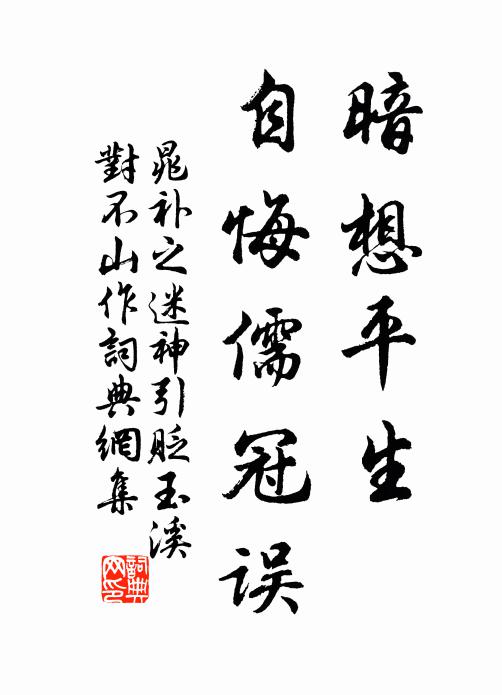 暗想平生
自悔儒冠误
晁补之迷神引贬玉溪
對不山作詞典網集
詞典
网印